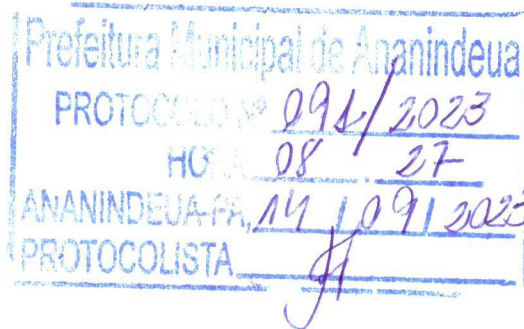 Prefeitura Municipal de Ananindeua
PROTOCOLO Nº 091/2023
HORA 08 : 27
ANANINDEUA-PA, 14 / 09 / 2023
PROTOCOLISTA